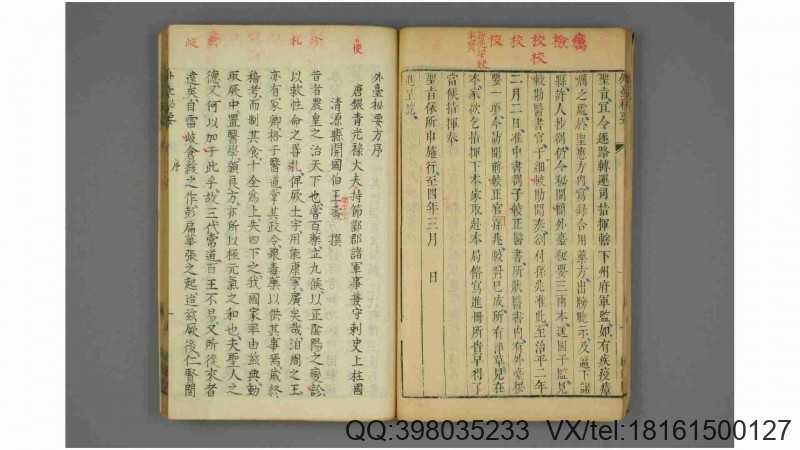 聖旨宜令逐路轉運司指揮轄下州府軍監如有疾疫瘴
癘之處於聖惠方內寫錄合用藥方出牓曉示及遍下諸
縣許人抄劄仍令秘閣簡外臺秘要三兩本送國子監見
校勘醫書官子細校勘聞奏劄付孫兆准此至治平二年
二月二
准中書劄子校正醫書所狀醫書內有外臺秘
要一項今訪聞前校正官孫兆校對已成所有
見在
本家欲乞指揮下本家取赴本局修寫進冊所貴早得了
當候指揮奉
聖旨依所申施行至四年三月 日
進呈訖
外臺秘要方序
唐銀青光祿大夫持節鄴郡諸軍事兼守刺史上柱國
清源縣開國伯王燾 撰
昔者農皇之治天下也嘗百藥立九候以正陰陽之變診
以救性命之昏札俾厥土宇用能康寧廣矣哉洎周之王
亦有冢卿格于醫道掌其政令聚毒藥以供其事焉歲終
稽考而制其食十全為上失四下之我國家率由茲典動
厥中置醫學頒良方亦所以極元氣之和也夫聖人之
德又何以加于此乎故三代常道百王不易又所從來者
遠矣自雷岐倉緩之作彭扁華張之起迨茲厥後仁賢間
外臺秘要 序
外臺秘要
校
校
校
檢
札
岐
QQ:398035233 VX/tel:18161500127